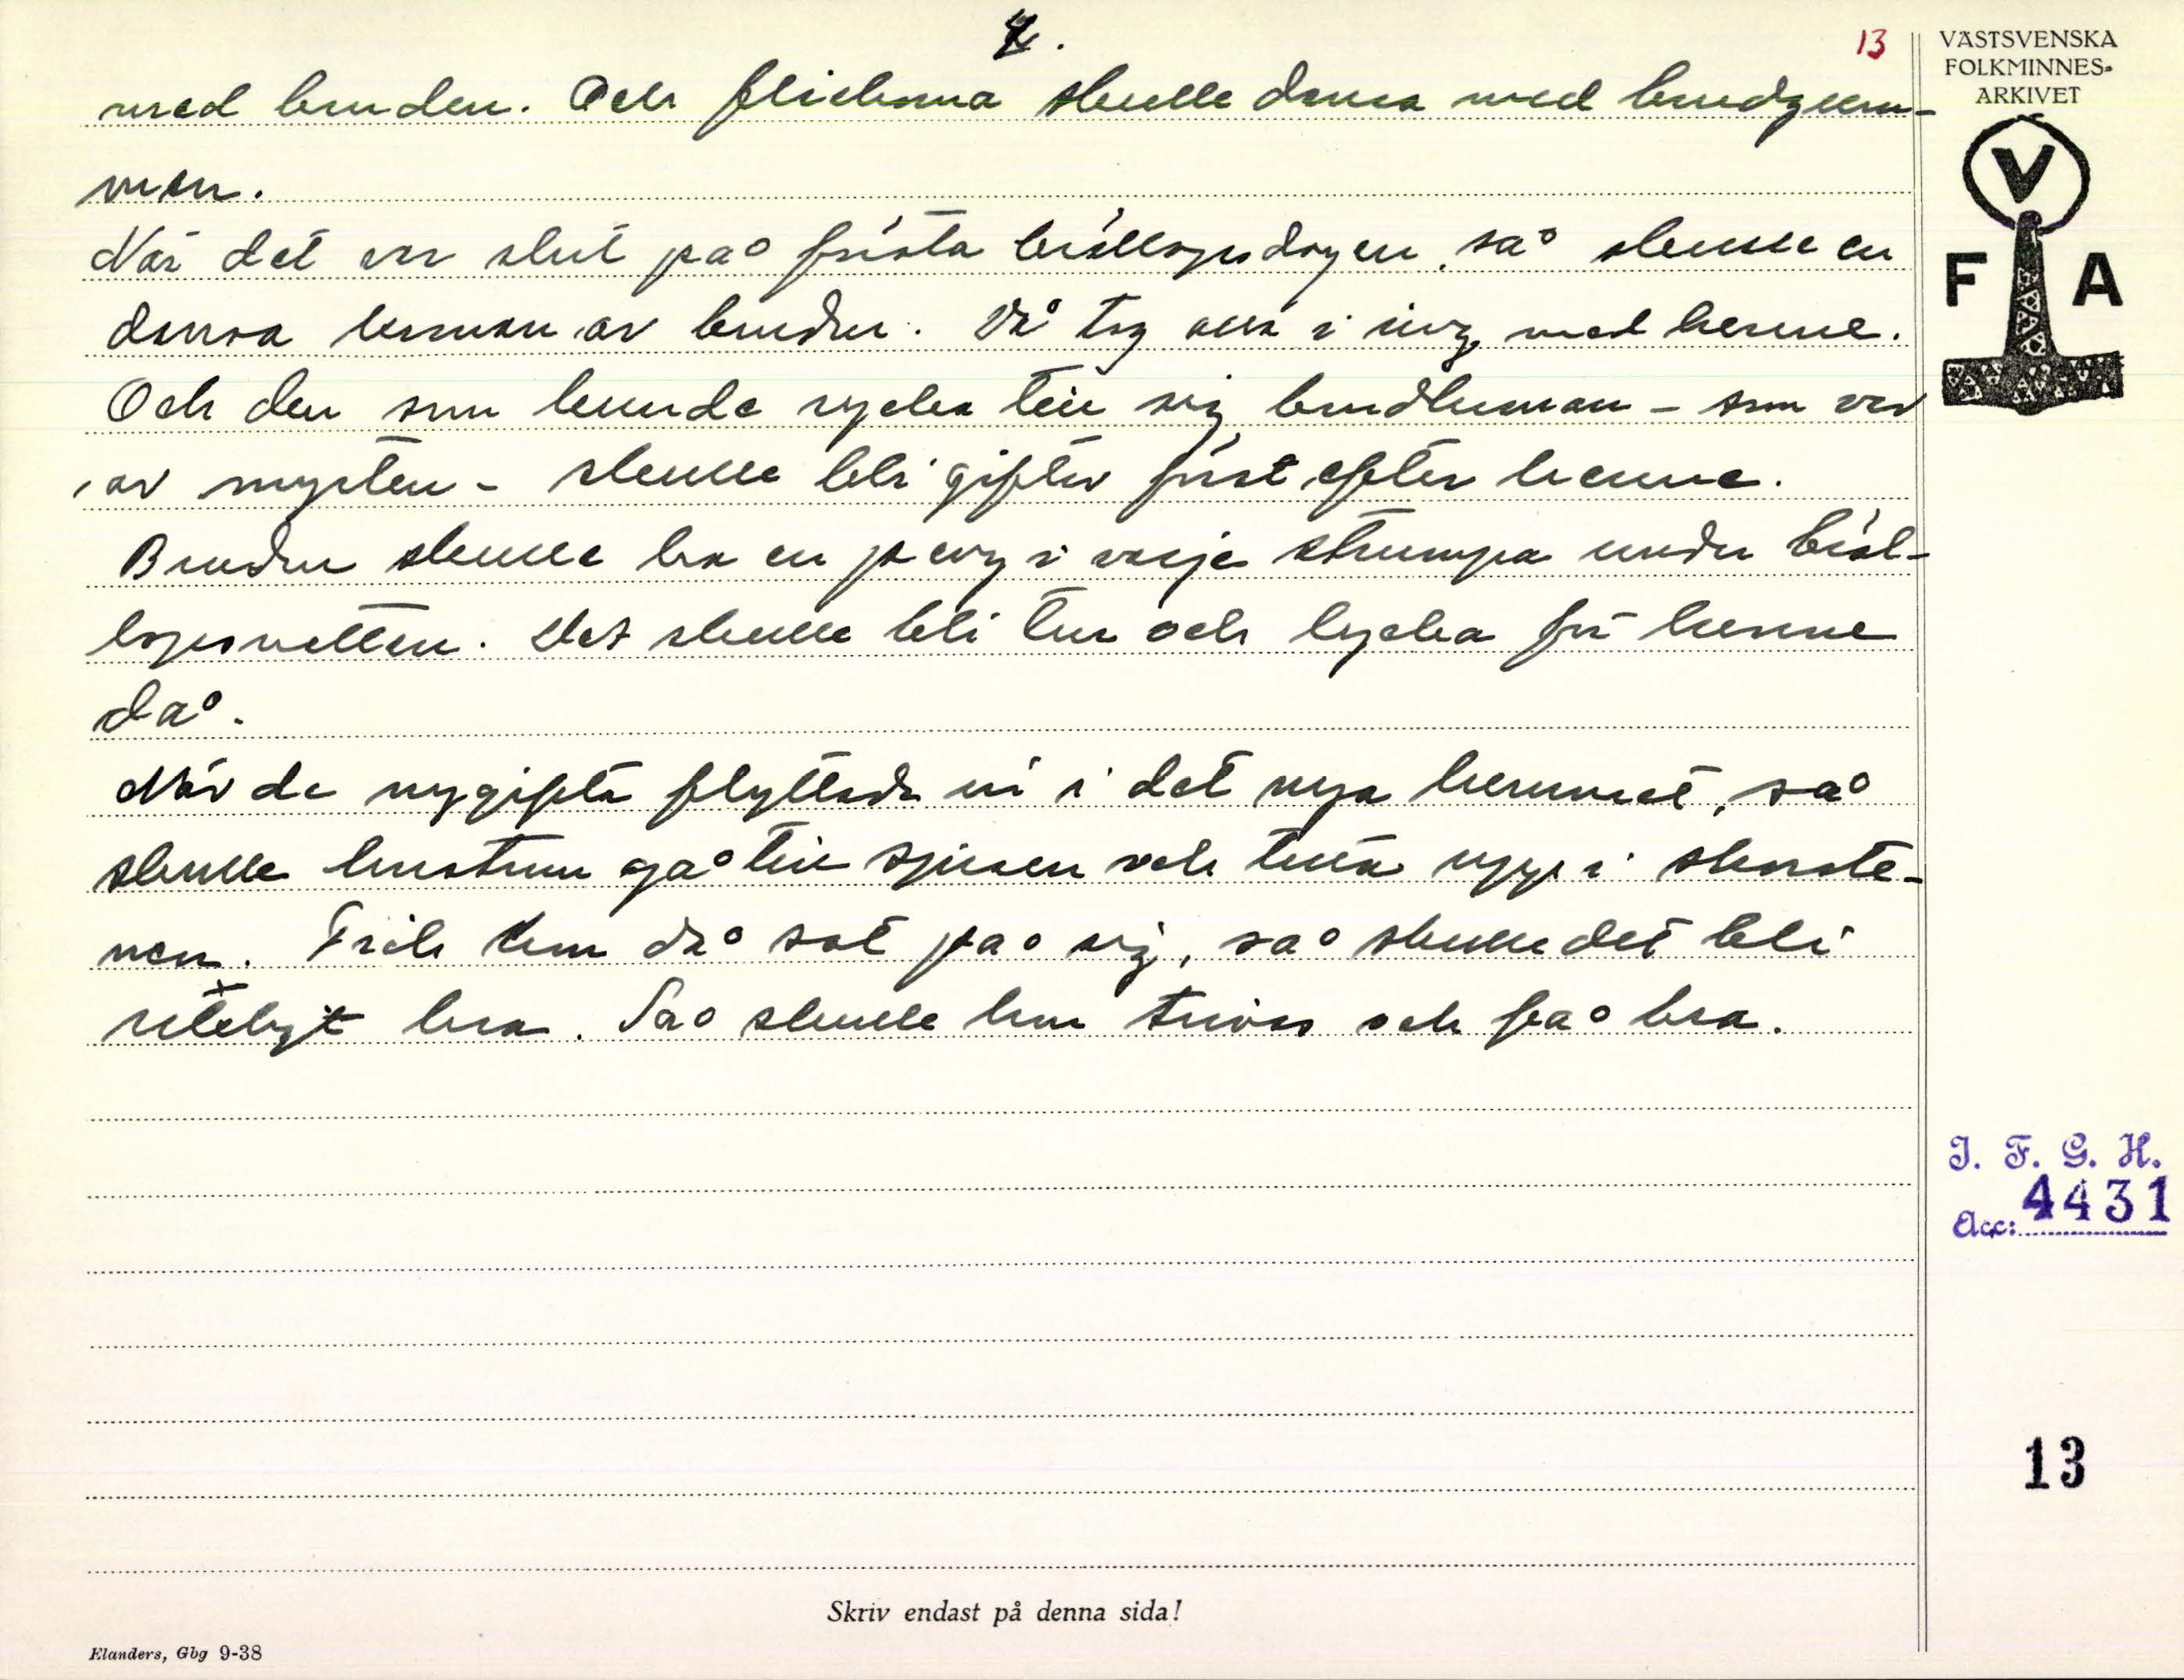 4.
13
VÄSTSVENSKA
FOLKMINNES-
ARKIVET
med bruden. Och flickorna skulle dansa med brudgum-
men.
När det var slut på första bröllopsdagen, så skulle en
dansa kronan av bruden. Då tog alla i ring med henne.
Och den som kunde rycka till sig brudkronan – som var
av myrten – skulle bli gifter först efter henne.
Bruden skulle ha en peng i varje strumpa under bröl-
lopsnatten. Det skulle bli tur och lycka för henne
då.
När de nygifta flyttade in i det nya hemmet, så
skulle hustrun gå till spisen och titta upp i skorste-
nen. Fick hon då sot på sig, så skulle det bli
riktigt bra. Så skulle hon trivas och få bra.
V
F A
I. F. G. H.
Acc: 4431
13
Skriv endast på denna sida!
Elanders, Gbg 9-38